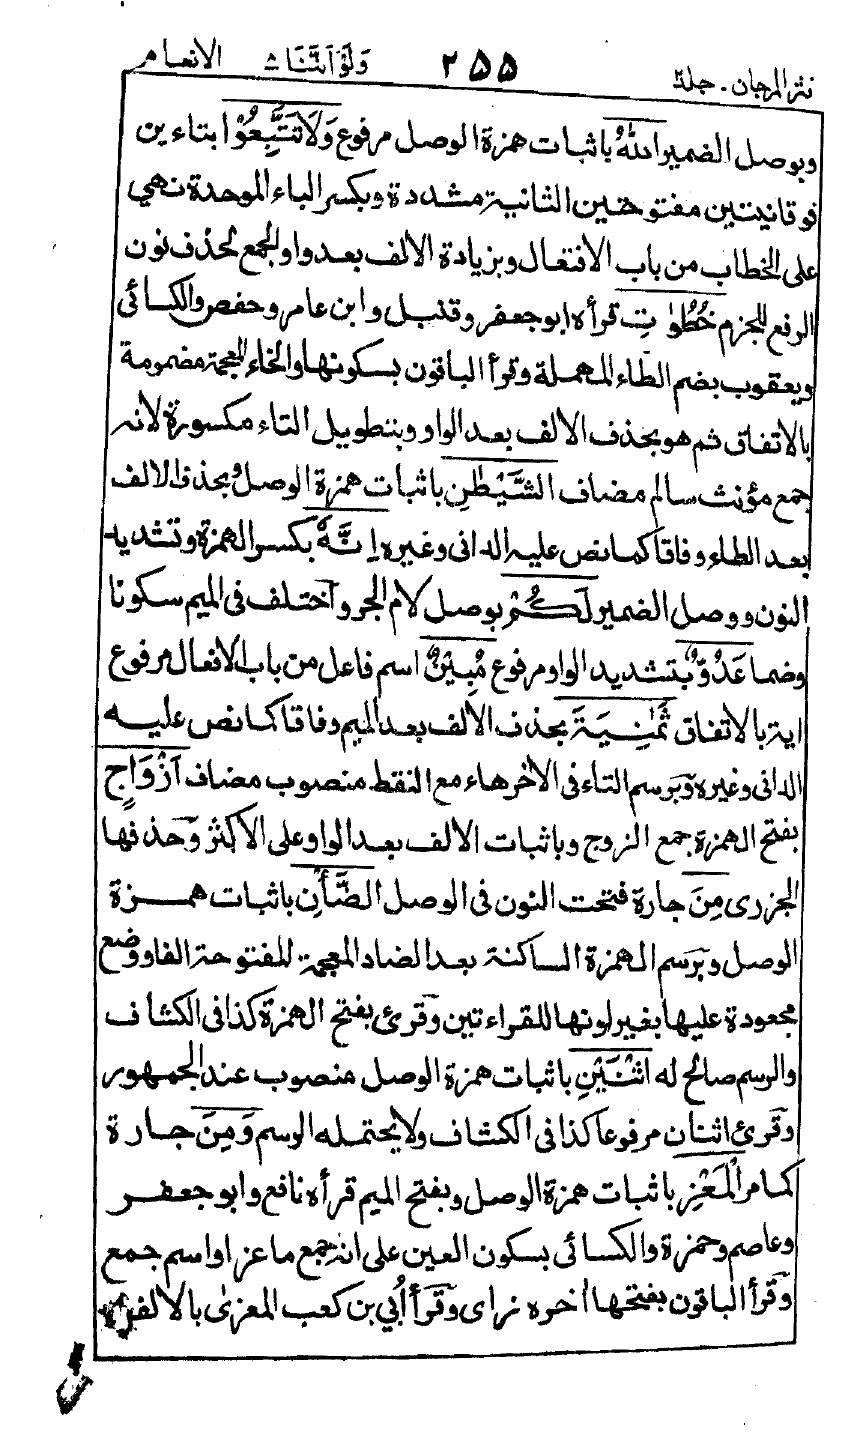 نثر المرجان. جلد ٢ ٢٥٥ وَلَوْ اَنَّنَا ٨ الانعام
وبوصل الضمير اللّٰهُ باثبات همزة الوصل مرفوع وَلَا تَتَّبِعُوْا بتاءين
فوقانيتين مفتوحتين الثانية مشددة وبكسر الباء الموحدة نهي
على الخطاب من باب الافتعال وبزيادة الالف بعد واو الجمع لحذف نون
الرفع للجزم خُطُوٰتِ قرأه ابو جعفر وقنبل وابن عامر وحفص والكسائى
ويعقوب بضم الطاء المهملة وقرأ الباقون بسكونها والخاء المعجمة مضمومة
بالاتفاق ثم هو بحذف الالف بعد الواو وبتطويل التاء مكسورة لانه
جمع مؤنث سالم مضاف الشَّيْطٰنِ باثبات همزة الوصل وبحذف الالف
بعد الطاء وفاقا كما نص عليه الدانى وغيره اِنَّهٗ بكسر الهمزة وتشديد
النون ووصل الضمير لَكُمْ بوصل لام الجر واختلف فى الميم سكونا
وضما عَدُوٌّ بتشديد الواو مرفوع مُبِيْنٌ اسم فاعل من باب الافعال مرفوع
اية بالاتفاق ثَمٰنِيَةَ بحذف الالف بعد الميم وفاقا كما نص عليه
الدانى وغيره وبرسم التاء فى الاخر هاء مع النقط منصوب مضاف اَزْوَاجٍ
بفتح الهمزة جمع الزوج وباثبات الالف بعد الواو على الاكثر وحذفها
الجزرى مِنَ جارة فتحت النون فى الوصل الضَّاْنِ باثبات همزة
الوصل وبرسم الهمزة الساكنة بعد الضاد المعجمة المفتوحة الفا ووضع
مجعودة عليها بغير لونها للقراءتين وقرئ بفتح الهمزة كذا فى الكشاف
والرسم صالح له اثْنَيْنِ باثبات همزة الوصل منصوب عند الجمهور
وقرئ اثنان مرفوعا كذا فى الكشاف ولا يحتمله الرسم وَمِنَ جارة
كما مر الْمَعْزِ باثبات همزة الوصل وبفتح الميم قرأه نافع وابو جعفر
وعاصم وحمزة والكسائى بسكون العين على انه جمع ماعز او اسم جمع
وقرأ الباقون بفتحها اخره زاى وقرأ أُبي بن كعب المعزى بالالف